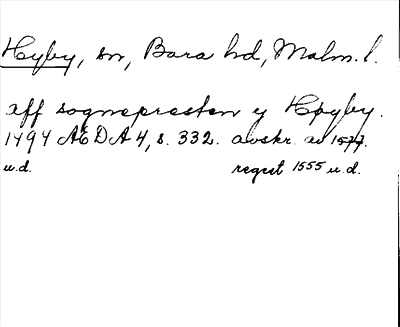 Hyby, sn, Bara hd, Malm. l.
aff sognepresten y Høyby.
1494 AEDA 4, s. 332. avskr. av 1577.
u.d. regest 1555 u.d.